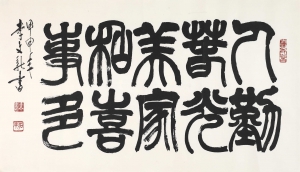 人勤
春光
美家
和喜
事多
甲申年
李文書